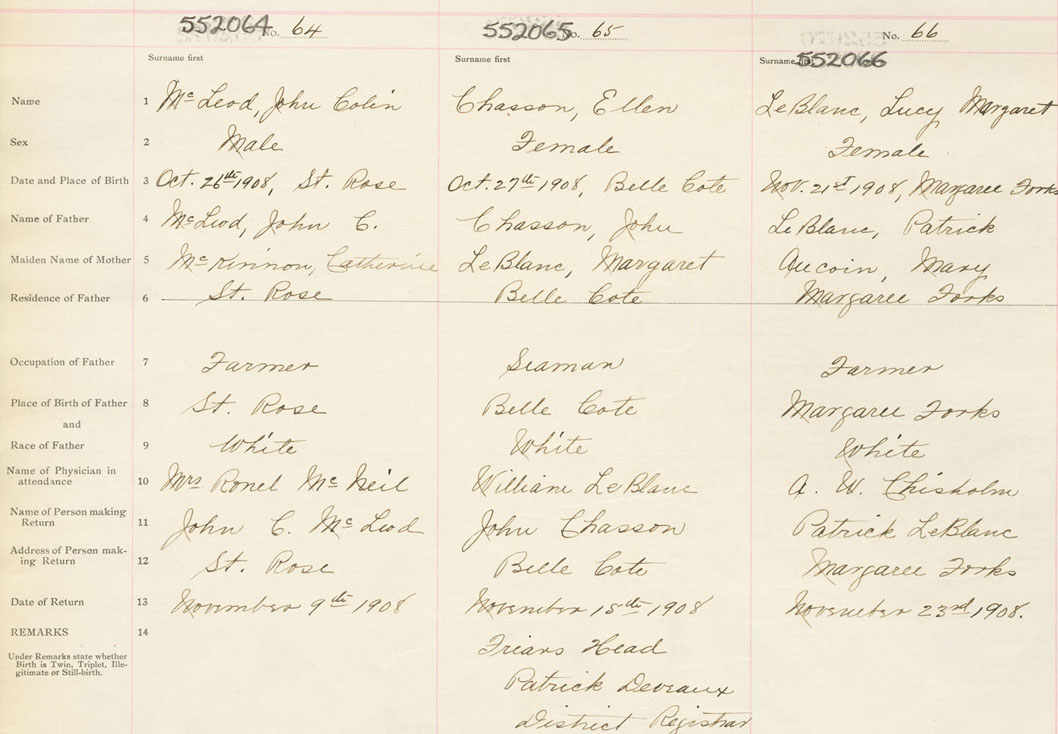 552064 No. 64 552065 No. 65 No. 66
Surname first Surname first Surname first 552066
Name 1 McLeod, John Colin Chasson, Ellen LeBlanc, Lucy Margaret
Sex 2 Male Female Female
Date and Place of Birth 3 Oct. 26th 1908, St. Rose Oct. 27th 1908, Belle Cote Nov. 21st 1908, Margaree Forks
Name of Father 4 McLeod, John C. Chasson, John LeBlanc, Patrick
Maiden Name of Mother 5 McKinnon, Catherine LeBlanc, Margaret Aucoin, Mary
Residence of Father 6 St. Rose Belle Cote Margaree Forks
Occupation of Father 7 Farmer Seaman Farmer
Place of Birth of Father 8 St. Rose Belle Cote Margaree Forks
and
Race of Father 9 White White White
Name of Physician in
attendance 10 Mrs Ronel McNeil William LeBlanc A. W. Chisholm
Name of Person making
Return 11 John C. McLeod John Chasson Patrick LeBlanc
Address of Person mak-
ing Return 12 St. Rose Belle Cote Margaree Forks
Date of Return 13 November 9th 1908 November 15th 1908 November 23rd 1908.
REMARKS 14
Under Remarks state whether
Birth is Twin, Triplet, Ille-
gitimate or Still-birth.
Friars Head
Patrick Deveaux
District Registrar